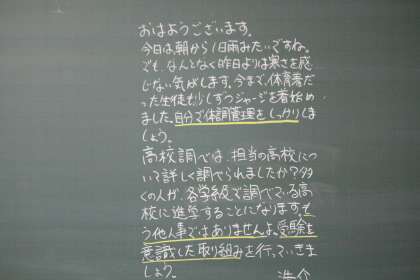 おはようございます。
今日は朝から1日雨みたいですね。
でも、なんとなく昨日よりは寒さを感
じない気がします。今まで、体育着だ
った生徒も少しずつジャージを着始め
ました。自分で体調管理をしっかりしま
しょう。
高校調べでは、担当の高校につ
いて詳しく調べられましたか？多
くの人が、各学級で調べている高
校に進学することになります。も
う他人事ではありませんよ。受験を
意識した取り組みを行っていきま
しょう。